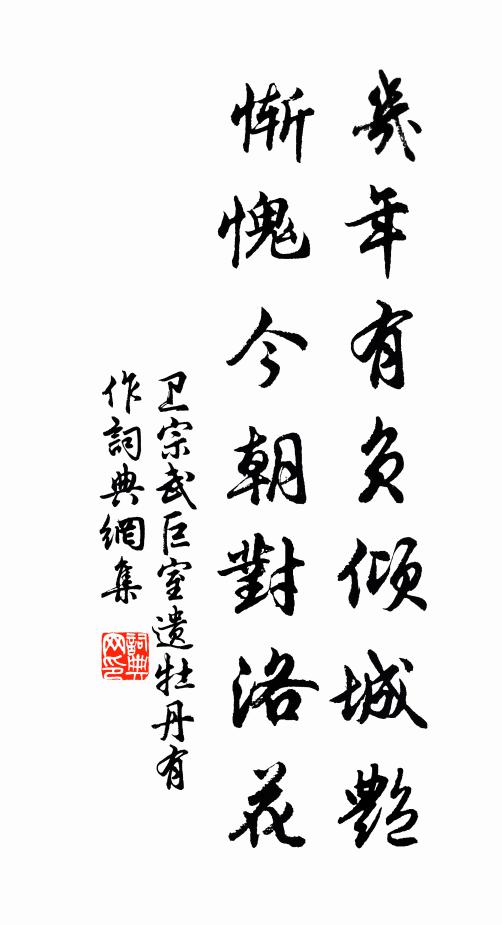 幾年有負傾城艷
慚愧今朝對洛花
卫宗武巨室遗牡丹有
作詞典網集
詞典網印